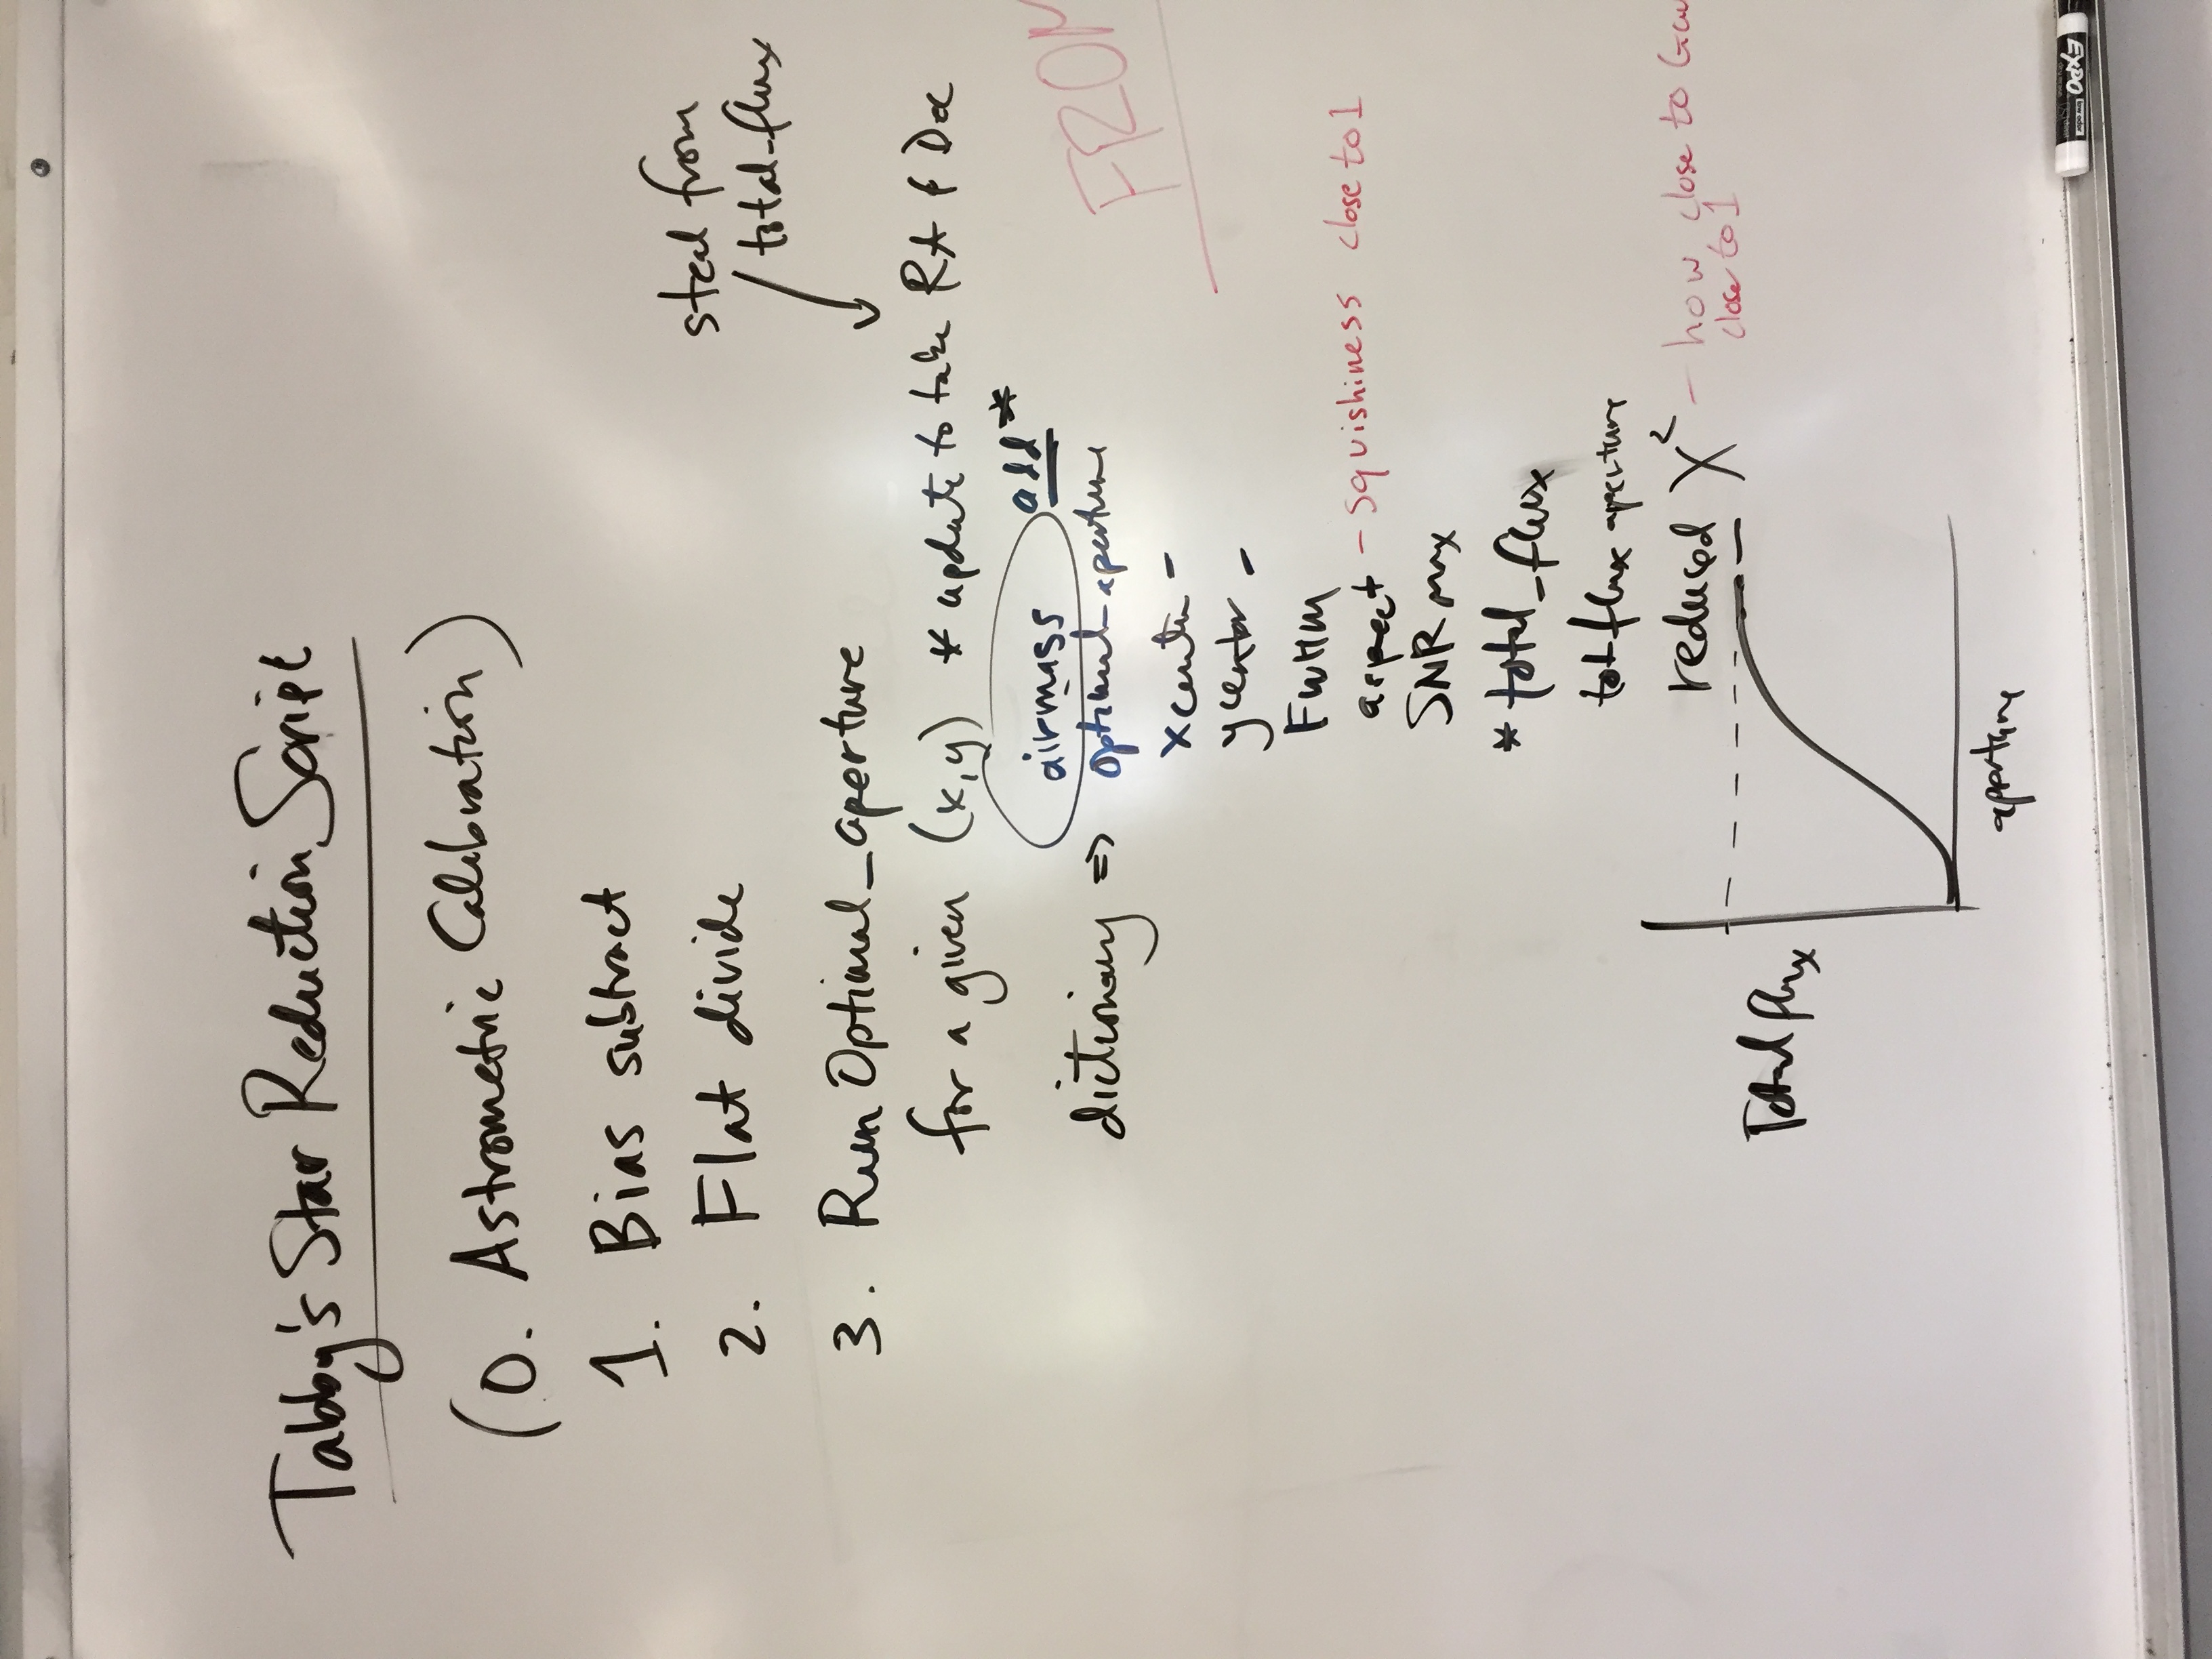 Tabby's Star Reduction Script
(0. Astrometric Calibration)
1. Bias subtract
2. Flat divide
steal from
total_flux
3. Run Optimal_aperture
for a given (x,y) * update to take RA & Dec
airmass add*
dictionary => optimal aperture
xcenter -
ycenter -
FWHM
aspect - squishiness close to 1
SNR max
* total_flux
tot flux aperture
reduced χ² - how close to Gau
close to 1
Total flux
aperture
FROM
EXPO
low odor